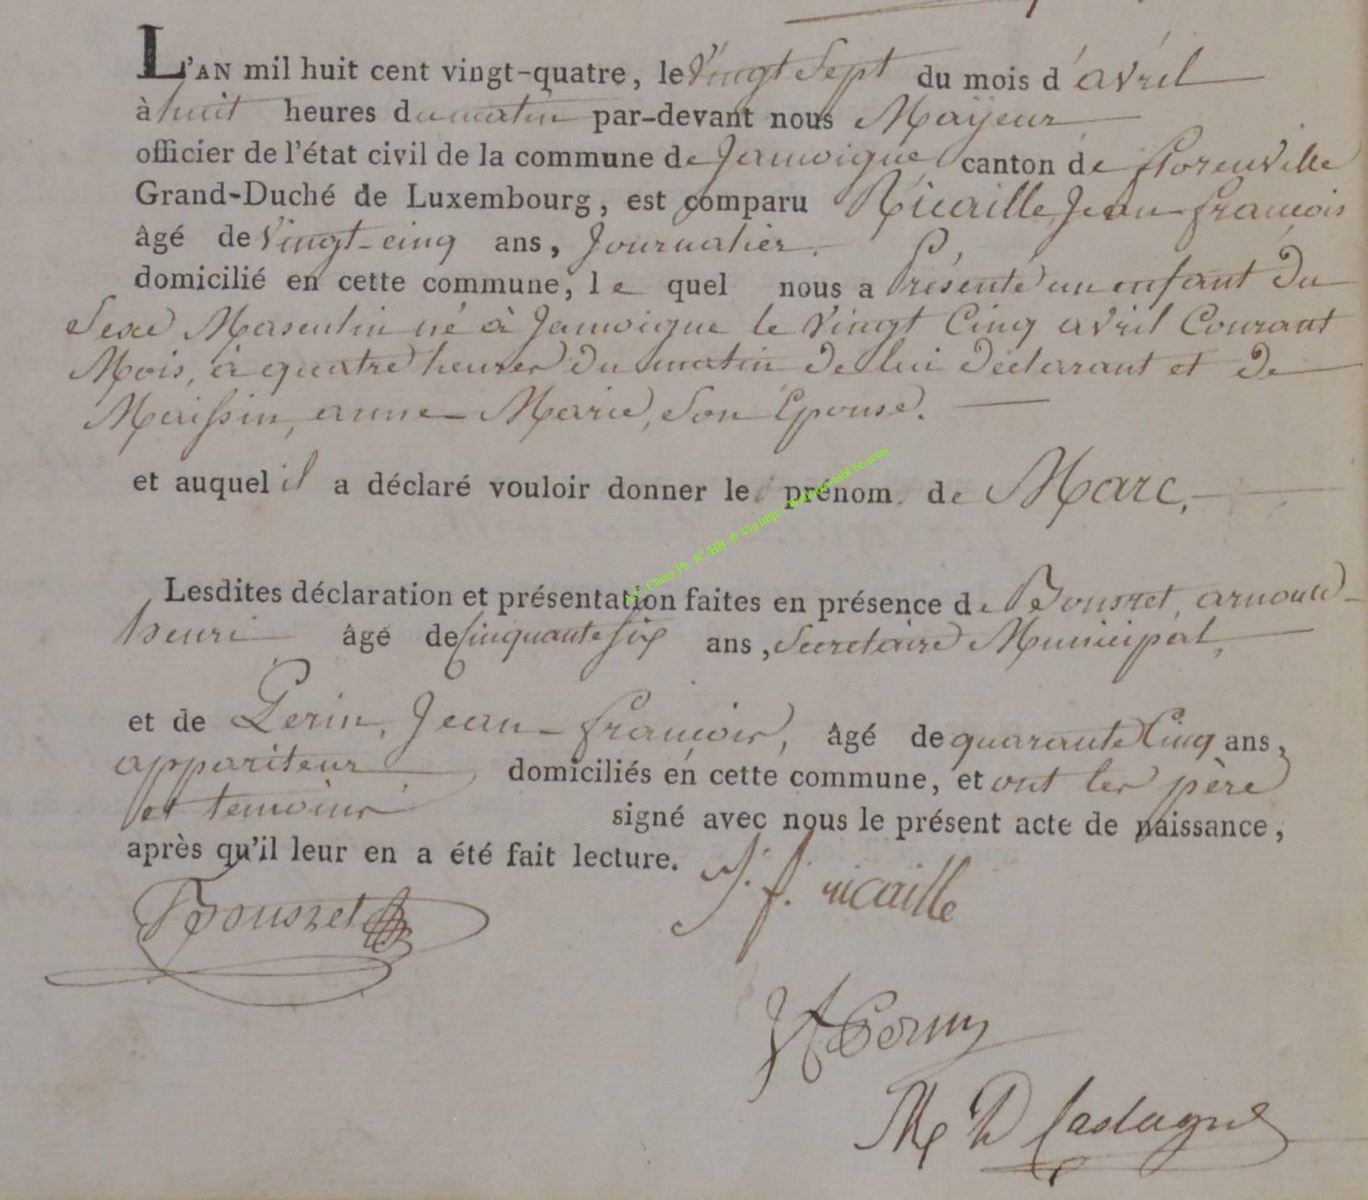 L'AN mil huit cent vingt-quatre, le Vingt Sept du mois d'avril
à huit heures du matin par-devant nous Mayeur
officier de l'état civil de la commune de Jamoigne, canton de florenville
Grand-Duché de Luxembourg, est comparu Nicaille, Jean-françois
âgé de Vingt-cinq ans, Journalier.
domicilié en cette commune, le quel nous a Présenté un enfant Du
Sexe Masculin né à Jamoigne le Vingt Cinq avril Courant
Mois, à quatre heures Du matin De lui Déclarant et De
Maissin, anne-Marie, Son Épouse.
et auquel il a déclaré vouloir donner le prénom de Marc,
Lesdites déclaration et présentation faites en présence de Bouszet, arnould-
henri âgé de Cinquante Six ans, Secretaire Municipal,
et de Perin, Jean-françois, âgé de quarante Cinq ans,
appariteur domiciliés en cette commune, et ont les père
et temoins signé avec nous le présent acte de naissance,
après qu'il leur en a été fait lecture.
J. f. nicaille
Bouszet